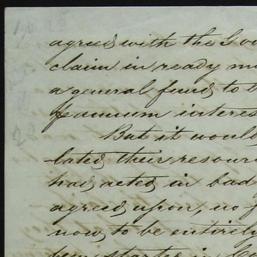 agreed with the Gov
claim in ready m
a general fund to t
premium interes
But it would
lated their resour
had acted in bad
agreed upon, no f
now, to be entirely
been started in